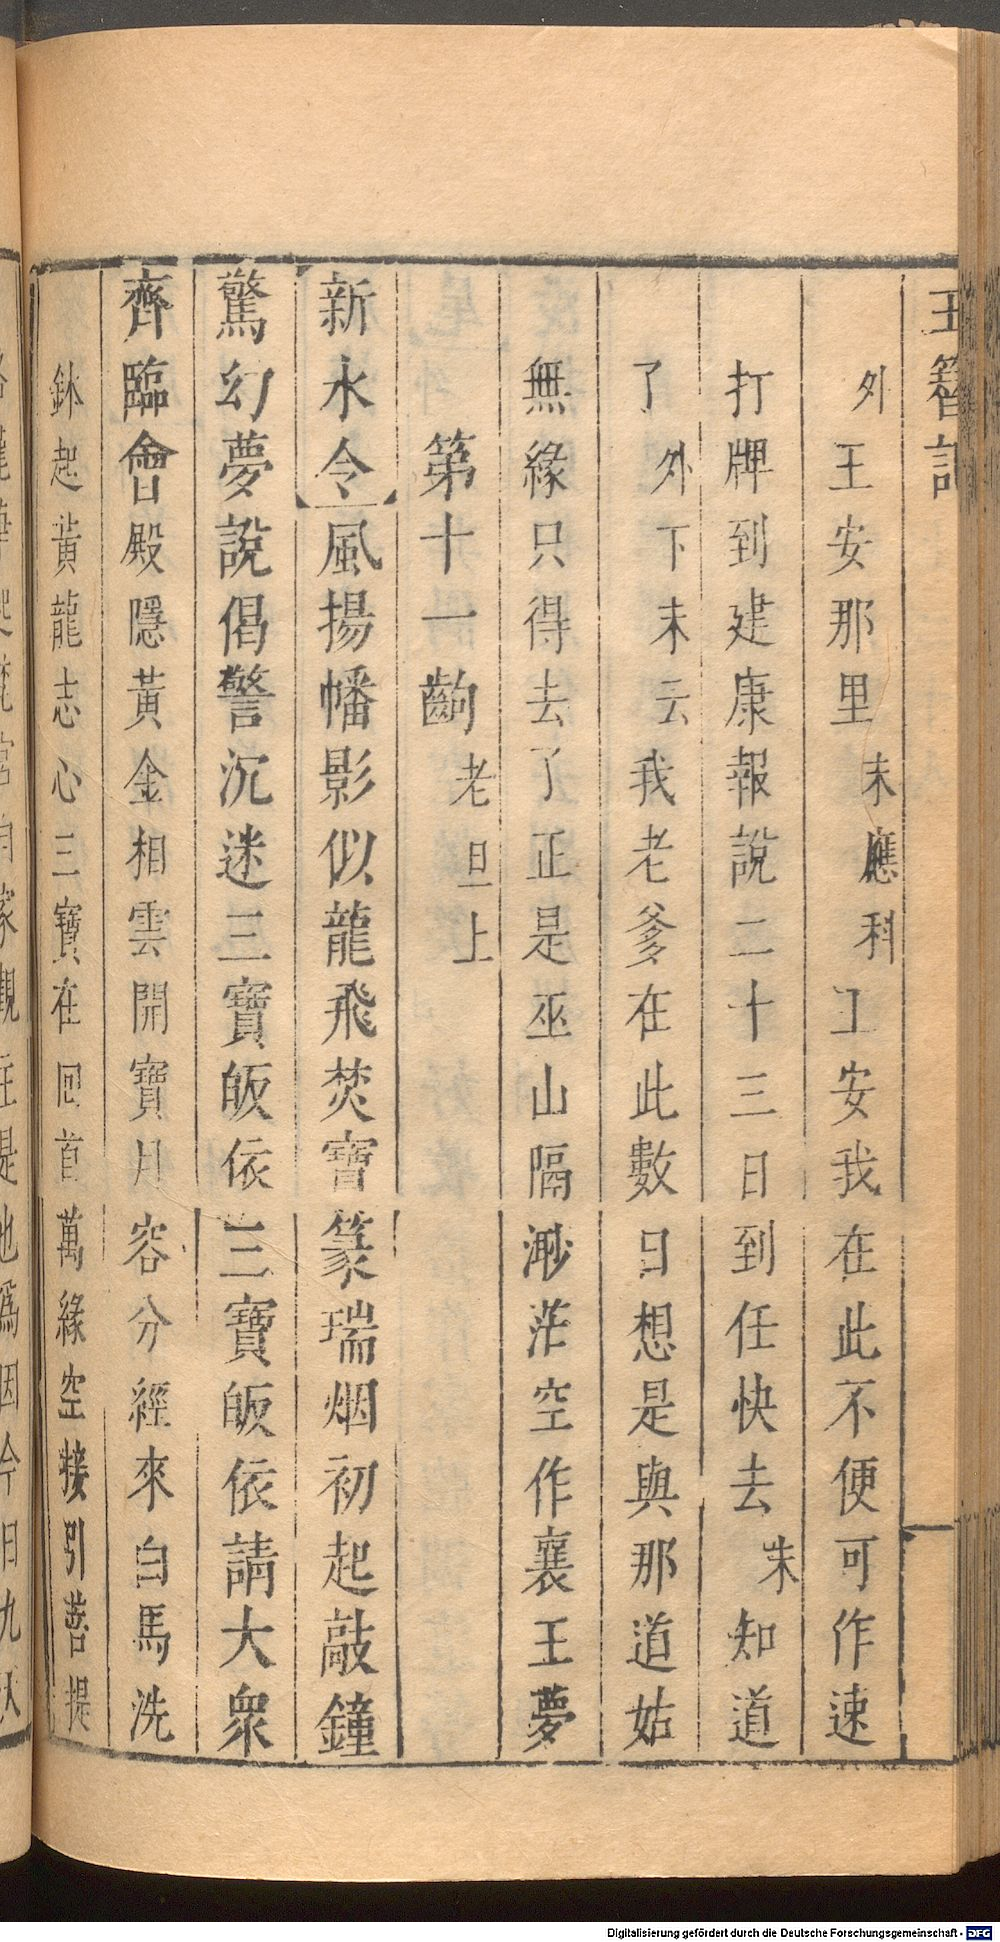 玉簪記
外王安那里末應科王安我在此不便可作速
打牌到建康報說二十三日到任快去末知道
了外下末云我老爹在此數日想是與那道姑
無緣只得去了正是巫山隔渺茫空作襄王夢
第十一齣老旦上
新水令風揚幡影似龍飛焚寶篆瑞烟初起敲鐘
驚幻夢說偈警沉迷三寶皈依三寶皈依請大眾
齊臨會殿隱黃金相雲開寶月容分經來白馬洗
鉢起黃龍志心三寶在回首萬緣空接引菩提
Digitalisierung gefördert durch die Deutsche Forschungsgemeinschaft - DFG